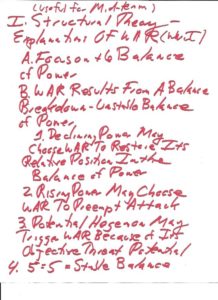 (Useful for Mid-term)
I. Structural Theory -
Explanation Of WAR (WWI)
A. Focus on the Balance
of Power
B. WAR Results From A Balance
Breakdown - Unstable Balance
of Power
1. Declining Power May
Choose WAR To Restore Its
Relative Position In the
Balance of Power
2. Rising Power May Choose
WAR To Preempt Attack
3. Potential Hegemon May
Trigger WAR Because of Its
Objective Threat Potential
4. 5 = 5 = Stable Balance